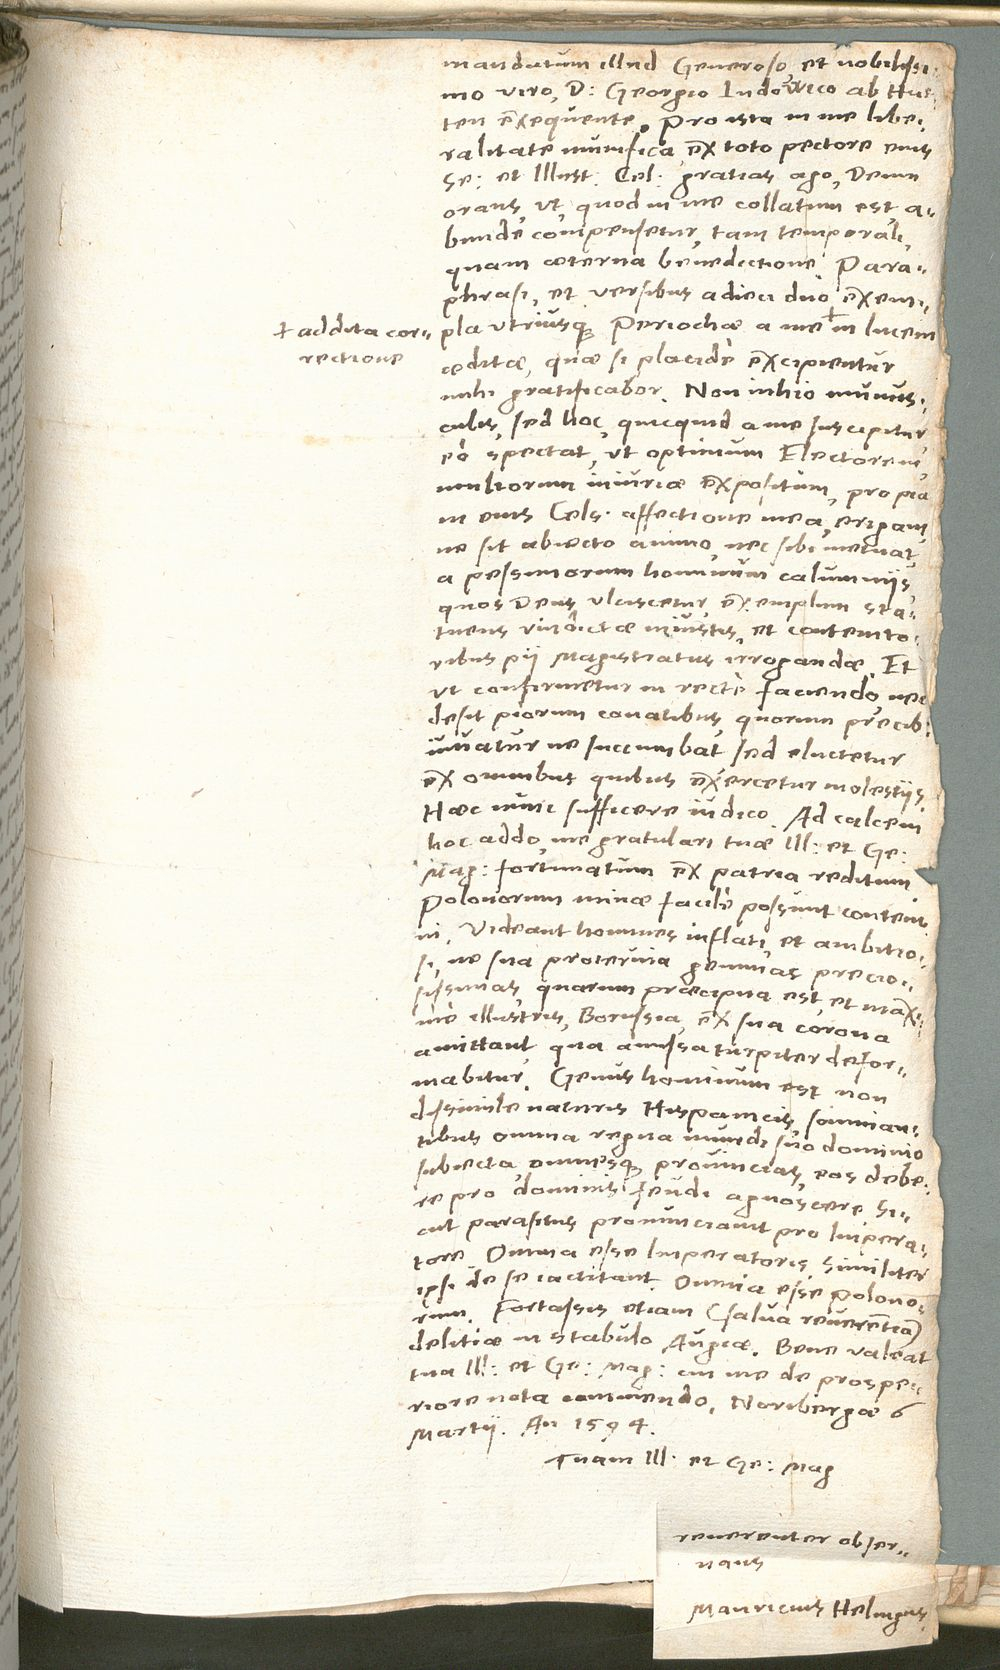 mandatum illud Generoso et nobilissi:
mo viro, D: Georgio Ludowico ab Hut:
ten exequente. Pro ista in me libe:
ralitate munifica ex toto pectore eius
Se: et Illust. Cel: gratias ago, Deum
orans, ut, quod in me collatum est, a:
bunde compensetur, tam temporali,
quam æterna benedictione. Para:
phrasi, et versibus adieci duo exem:
pla vtriusq Periochæ a me + in lucem
+ addita cor:
rectione
æditæ, quæ si placidè excipientur
mihi gratificabor. Non inhio munus:
culis, sed hoc, quicquid a me suscipitur
eò spectat, ut optimum Electorem,
multorum iniuriæ expositum, pro pia
in eius Cels: affectione mea, erigam,
ne sit abiecto animo, nec sibi metuat
a pessimorum hominum calumniis,
quos Deus ulciscetur, exemplum sta:
tuens vindictæ iniustis, et contemto:
ribus pij Magistratus irrogandæ. Et
ut confirmetur in rectè faciendo, nec
desit piorum conatibus, quorum precib:
iuuatur ne succumbat sed eluctetur
ex omnibus quibus exercetur molestijs.
Hæc nunc sufficere iudico. Ad calcem
hoc addo, me gratulari tuæ Ill: et Ge:
Mag: fortunatum ex patria reditum
Polonorum minæ facilè possunt contem
ni. Videant homines inflati, et ambitio:
si, ne sua proteruia gemmas precio:
sissimas, quarum præcipua est, et maxi:
mè illustris, Borussia, ex sua corona
amittant, qua amissa turpiter defor:
mabitur. Genus hominum est non
dissimile naturis Hispanicis, somnian:
tibus omnia regna mundi suo dominio
subiecta, omnesq prouincias, eos debe:
re pro dominis feudi agnoscere. Si:
cut parasitus pronunciauit pro Impera:
tore. Omnia esse Imperatoris, Similiter
ipsi de se iactitant Omnia esse Polono:
rum. Fortassis etiam (salua reuerentia)
delitiæ in stabulo Augiæ. Bene valeat
tua Ill: et Ge: Mag: cui me de prospe:
riore nota commendo. Noribergæ 6
Martij. An 1594.
Tuam Ill: et Ge: Mag
reuerenter obser:
uans
Mauricius Helingus.